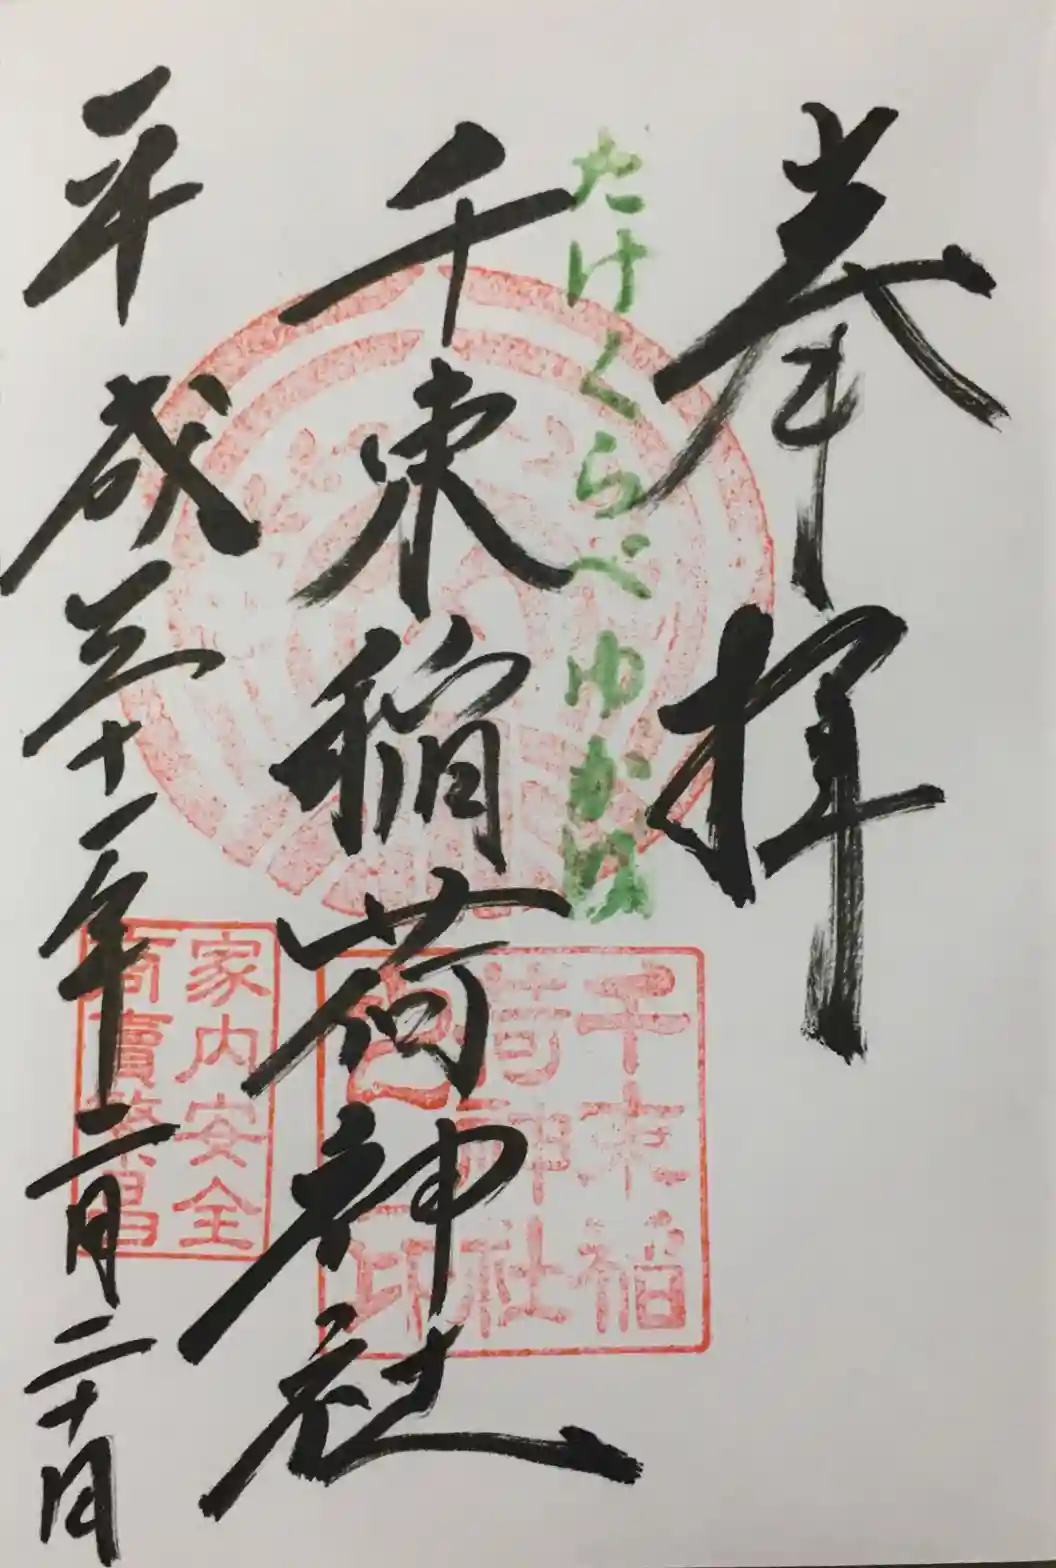 奉拝
たけくらべゆかりの
千束稲荷神社
平成三十一年二月二十日
千束稲
荷神社
印
家内安全
商賣繁昌